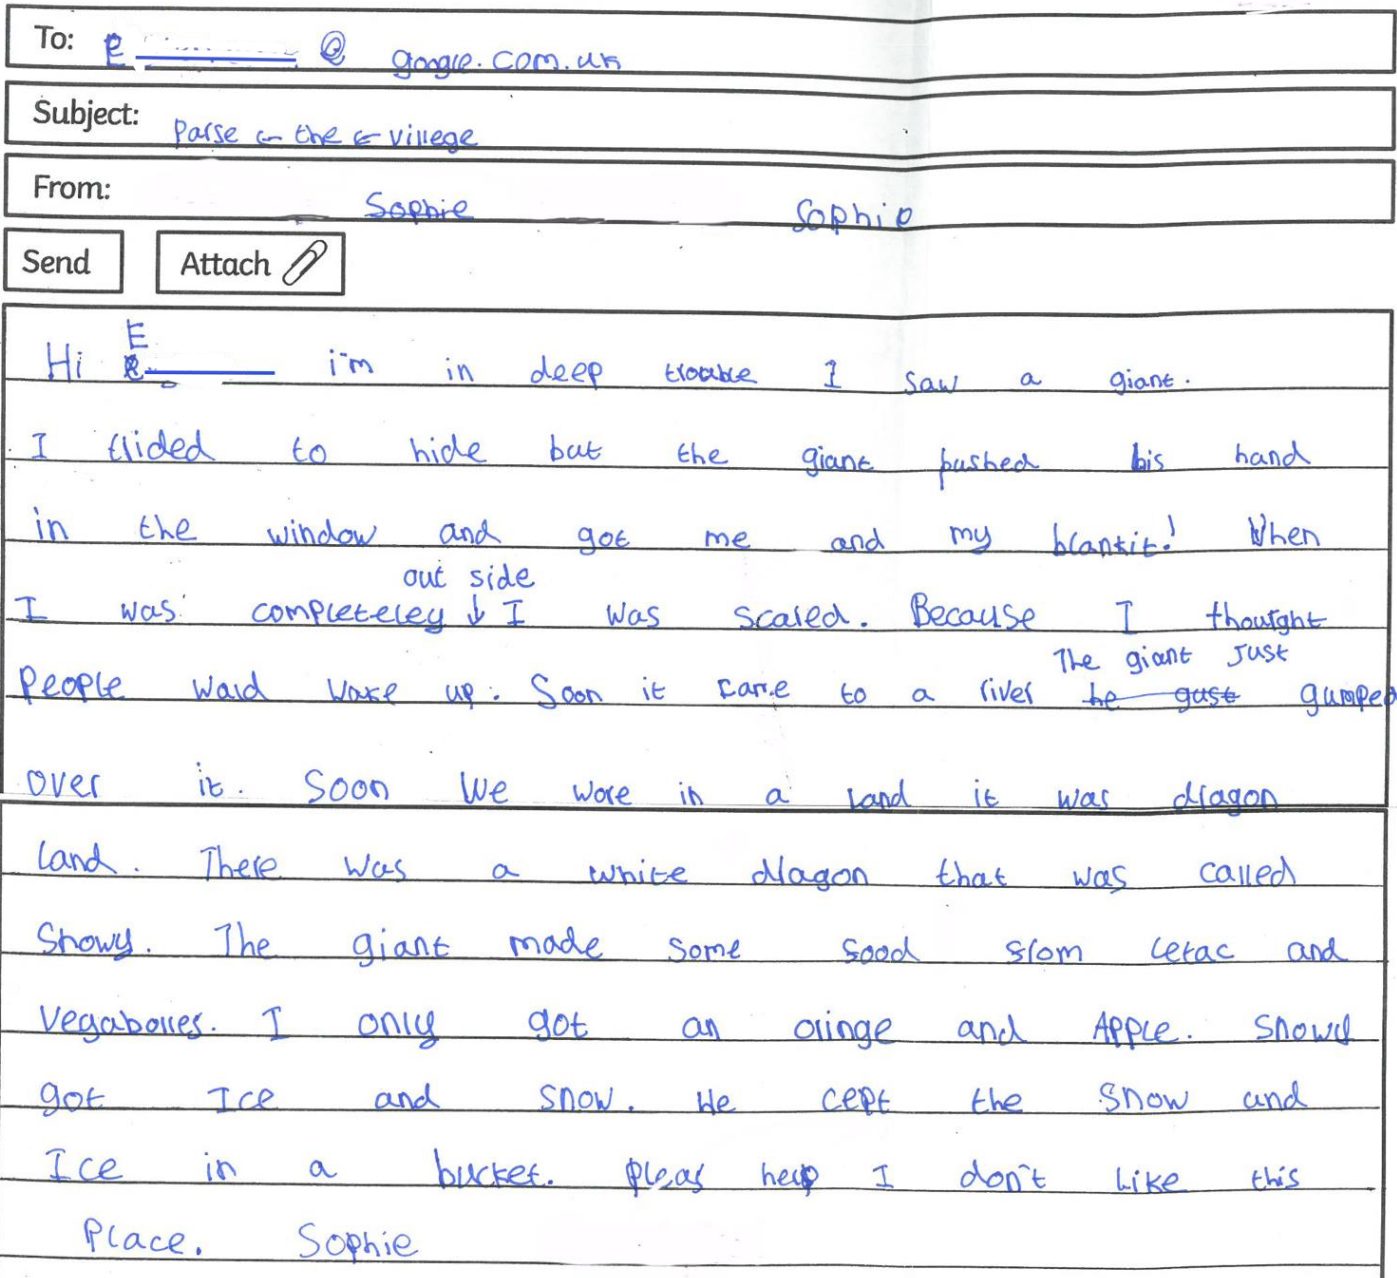 To: E @ google.com.uk
Subject: Parse ← the ← villege
From: Sophie Sophie
Send Attach
E
Hi i'm in deep trouble I saw a giant.
I trided to hide but the giant pushed his hand
in the window and got me and my blankit! When
out side
I was completeley ↓ I was scared. Because I thourght
The giant Just
People wald wake up. Soon it came to a river he gust gumped
over it. Soon We wore in a Land it was dragon
land. There was a white dragon that was called
Snowy. The giant made some sood from letac and
vegaboles. I only got an oringe and Apple. Snowy
got Ice and snow. He cept the snow and
Ice in a bucket. pleas help I don't Like this
Place. Sophie